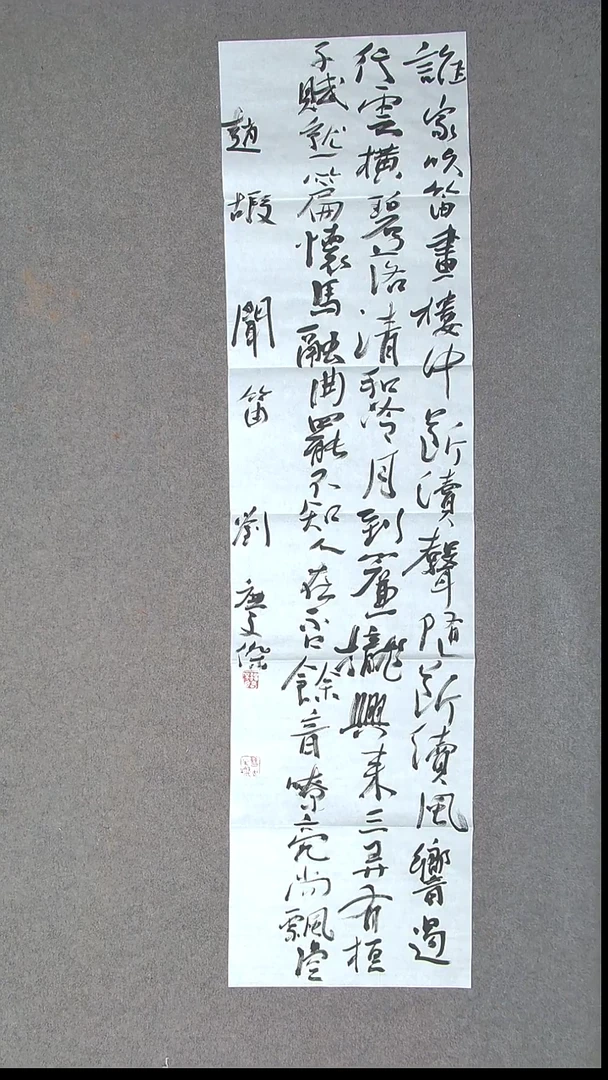 誰家吹笛畫樓中断續聲随断續風響遏
行雲橫碧落清和冷月到簾櫳興来三弄有桓
子賦就一篇懷馬融曲罷不知人在否餘音嘹亮尚飄空
趙嘏聞笛劉